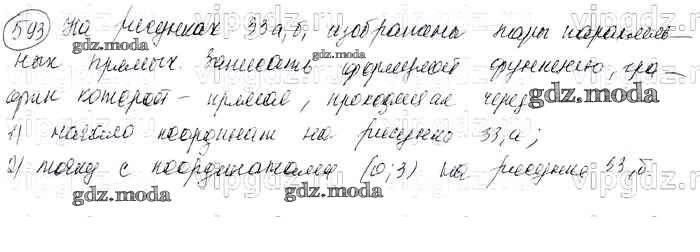 593 На рисунках 33 а, б, изображены пары параллель-
ных прямых. Записать формулой функцию, гра-
фик которой – прямая, проходящая через
1) начало координат на рисунке 33, а;
2) точку с координатами (0; 3) на рисунке 33, б.
gdz.moda
gdz.moda
gdz.moda
gdz.moda
gdz.moda
gdz.moda
gdz.moda